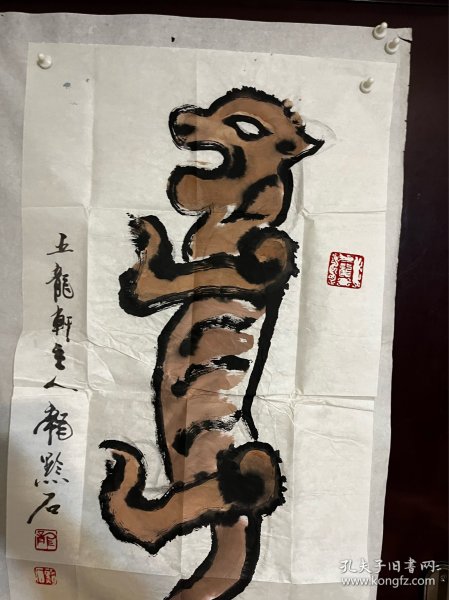 五龍軒主人龍黔石
孔夫子旧书网
www.kongfz.com